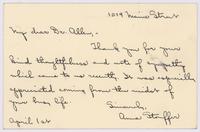 1019 Main Street
My dear Dr. Allen,
Thank you for your
kind thoughtfulness and note of sympathy
which came to us recently. It was especially
appreciated coming from the midst of
your busy life.
Sincerely,
Anna Stauffer
April 1st